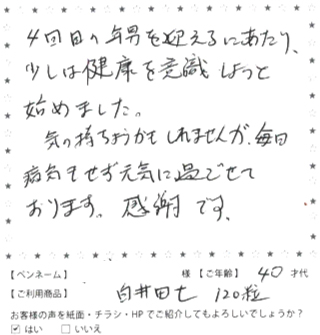 4回目の年男を迎えるにあたり、
少しは健康を意識しようと
始めました。
気の持ちようかもしれませんが、毎日
病気もせず元気に過ごせて
おります。感謝です。
【ペンネーム】 様 【ご年齢】 40 才代
【ご利用商品】 白井田七 120粒
お客様の声を紙面・チラシ・HPでご紹介してもよろしいでしょうか？
☑ はい □ いいえ